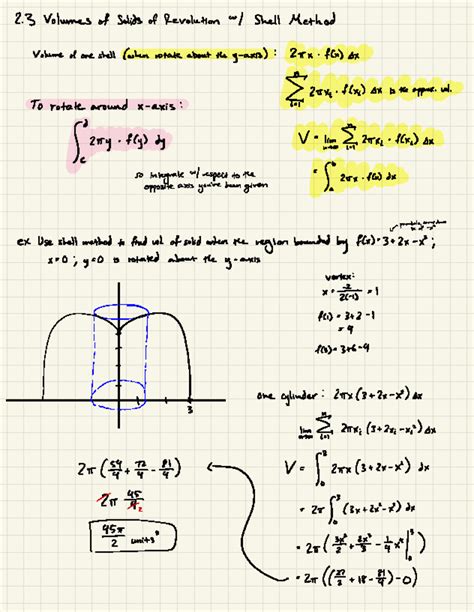 2.3 Volumes of Solids of Revolution w/ Shell Method
Volume of one shell (when rotate about the y-axis): 2πx · f(x) Δx
n Σ i=1 2πxᵢ · f(xᵢ) Δx is the approx. vol.
To rotate around x-axis:
∫_c^d 2πy · f(y) dy
V = lim n→∞ Σ i=1 n 2πxᵢ · f(xᵢ) Δx
= ∫_a^b 2πx · f(x) dx
so integrate w/ respect to the
opposite axis you've been given
ex Use shell method to find vol of solid when the region bounded by f(x) = 3+2x-x²;
x=0; y=0 is rotated about the y-axis
vertex:
x = -2/2(-1) = 1
f(1) = 3+2-1
= 4
f(3) = 3+6-9
3
one cylinder: 2πx(3+2x-x²) Δx
lim n→∞ Σ i=1 n 2πxᵢ(3+2xᵢ-xᵢ²) Δx
V = ∫_0^3 2πx(3+2x-x²) dx
= 2π ∫_0^3 (3x+2x²-x³) dx
= 2π (3x²/2 + 2x³/3 - 1/4 x⁴ |_0^3)
= 2π ((27/2 + 18 - 81/4) - 0)
2π (54/4 + 72/4 - 81/4)
2π 45/4 2
45π/2 units³